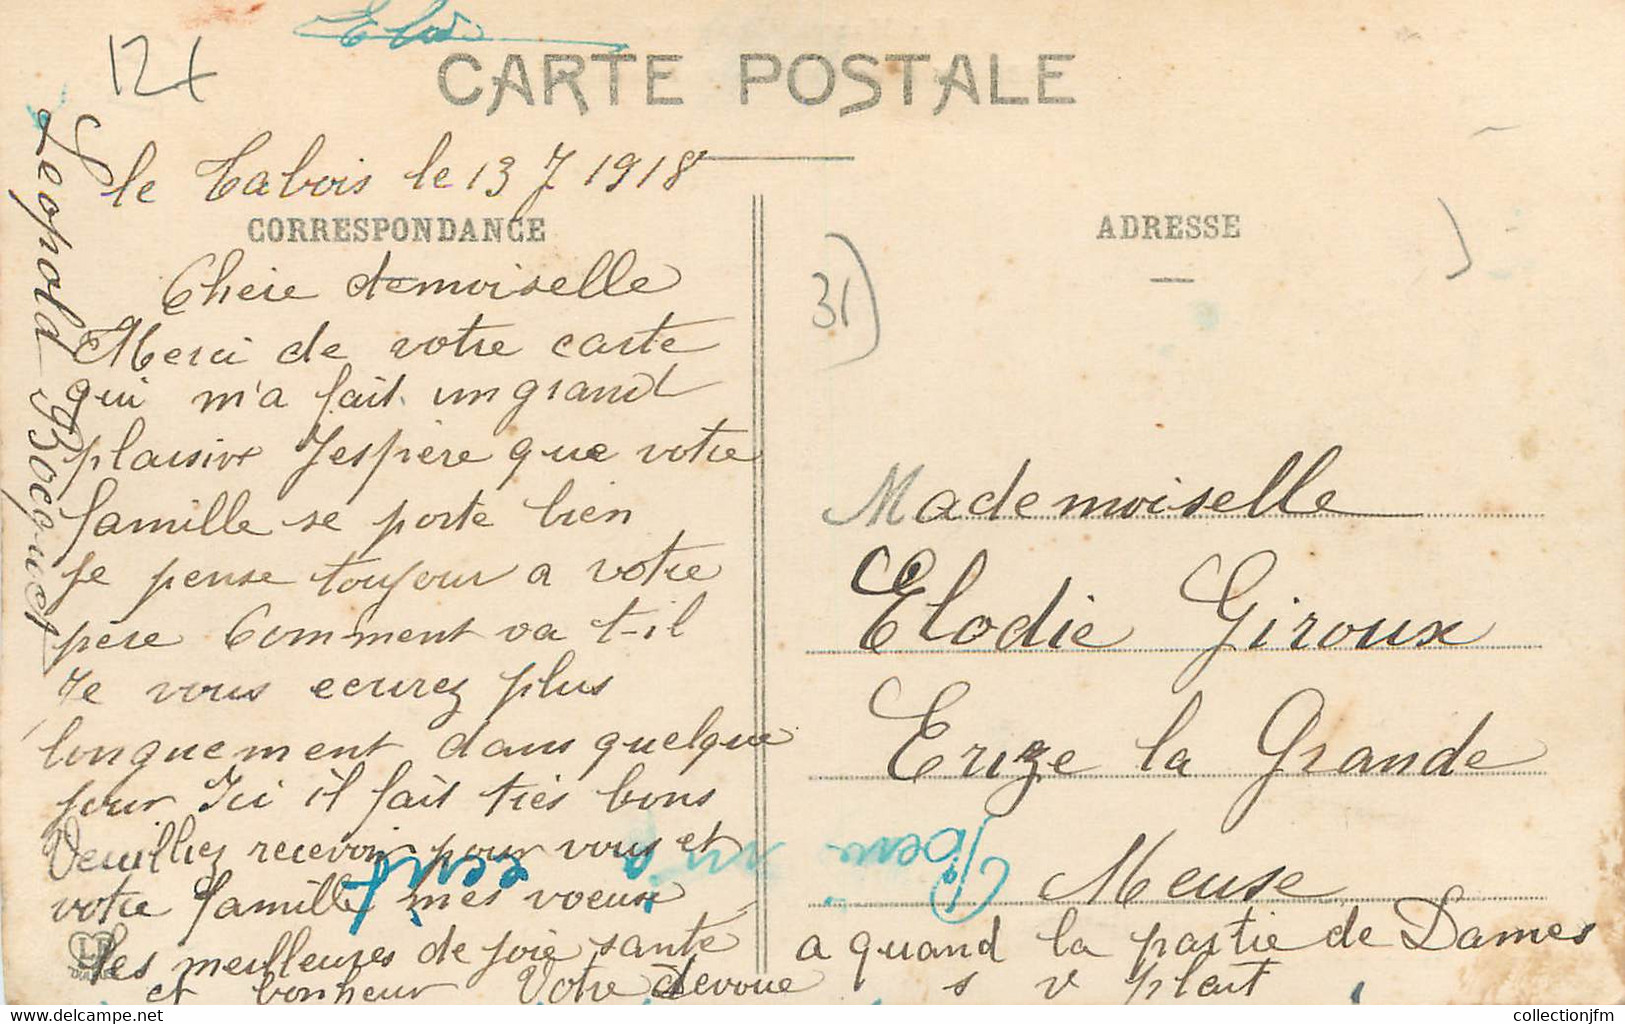 Elo
12f
CARTE POSTALE
le Cabois le 13 7 1918
CORRESPONDANCE
Chere demoiselle
Merci de votre carte
qui m'a fait un grand
plaisire Jespère que votre
famille se porte bien
Je pense toujour a votre
père Comment va t-il
Je vous ecrirez plus
longuement dans quelque
jour Ici il fait très bons
Veuilliez recevoir pour vous et
votre famille mes voeux
les meilleures de joie santé
et bonheur Votre devoue
Leopold Bocquet
ADRESSE
31)
Mademoiselle
Elodie Giroux
Erize la Grande
Meuse
a quand la partie de Dames
s v plait
collectionjfm
www.delcampe.net